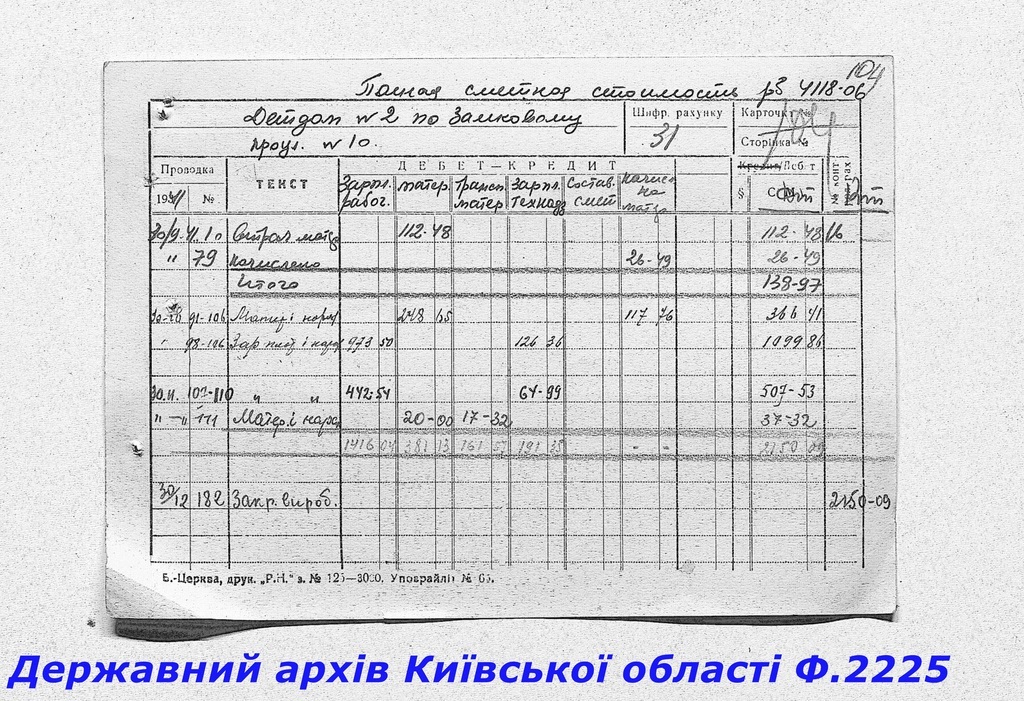 104
Полная сметная стоимость рб 4118-06
Детдом №2 по Замковому
проул. №10.
Шифр. рахунку
31
Карточка №
104
Сторінка №
Проводка
1941 №
ТЕКСТ
ДЕБЕТ—КРЕДИТ
Зарпл. работ.
матер.
Трансп. матер
Зарпл. технадз
Состав. смет
Начисл на матер
Кредит/Дебет
§
30/9. 41. 10 112-48 112-48 16
" 79 Начислено 26-49 26-49
Итого 138-97
91-106 Матер і наряд 248 65 117 76 366 41
" 98-106 Зар плат і наряд 973 50 126 36 1099 86
30.11. 107-110 " " 442-54 64-99 507-53
"—" 111 Матер і наряд 20-00 17-32 37-32
1416 04 381 13 161 57 191 35 - - 2150 09
30/12 182 Закр. вироб. 2150-09
Б.-Церква, друк. „Р.Н." з. № 125—3000. Упобрайліт № 65.
Державний архів Київської області Ф.2225